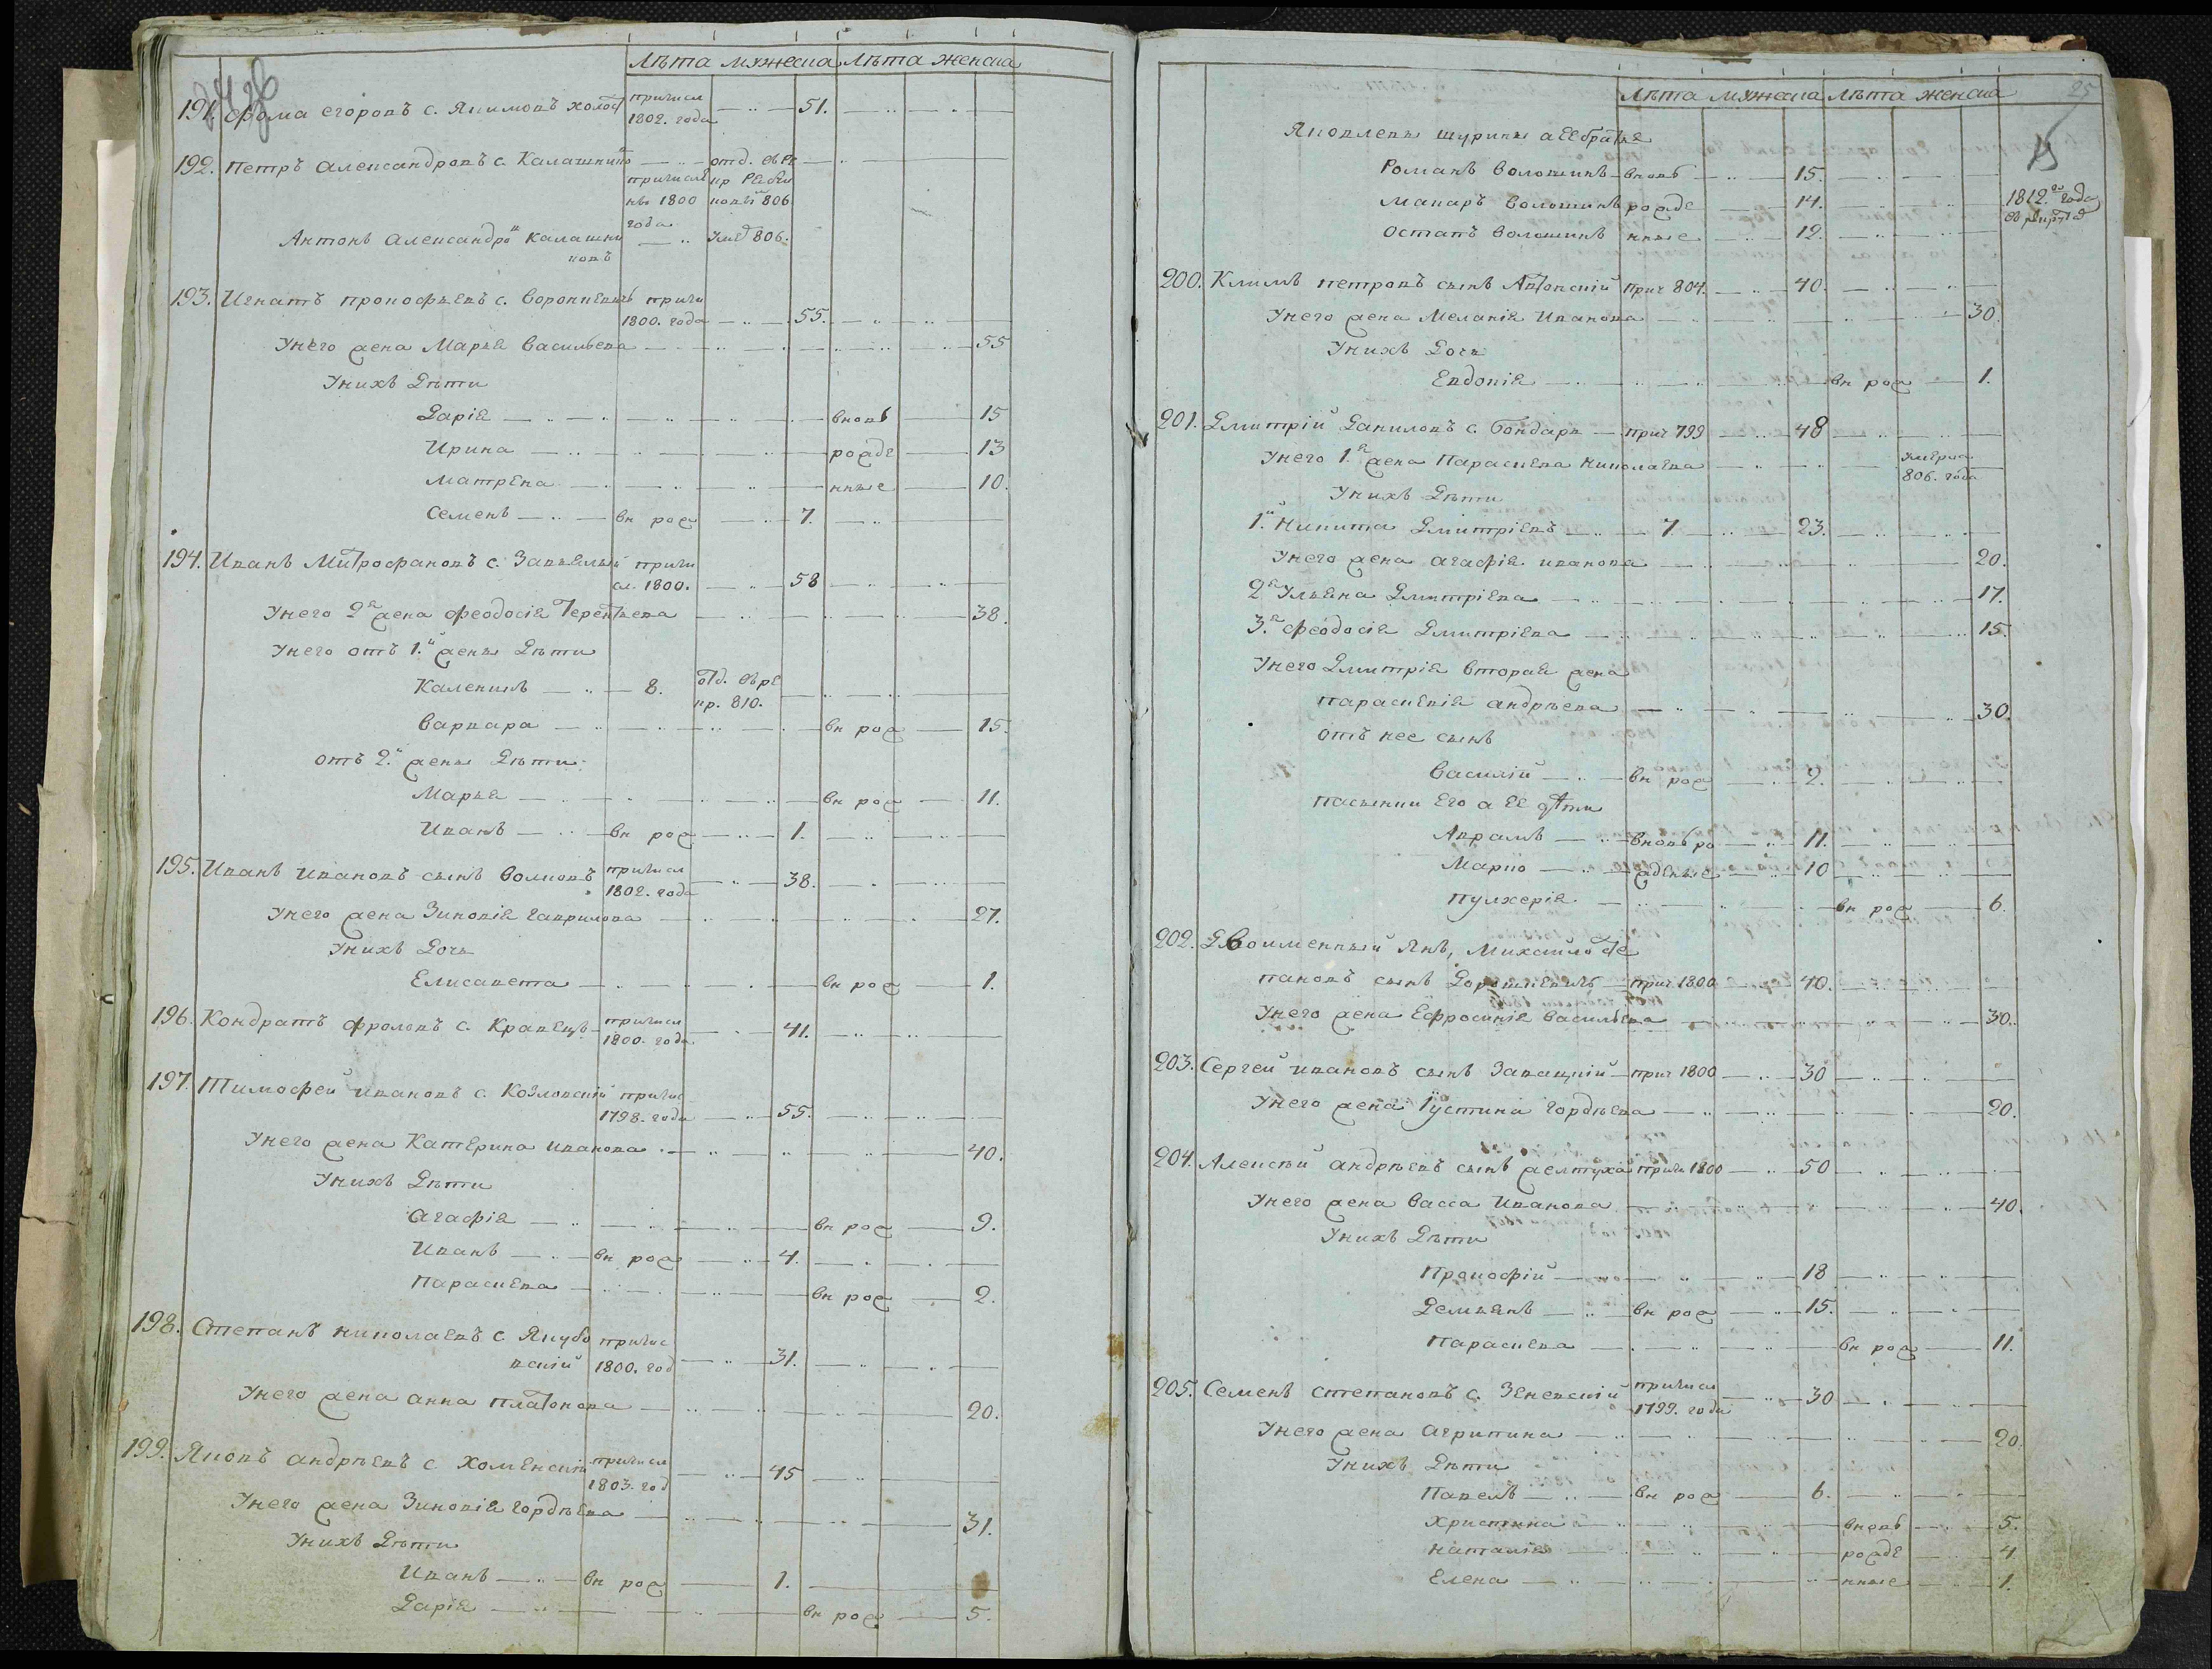 Лѣта мужеска Лѣта женска
191. Фома Егоровъ с. Якимовъ холост причисл 1802. года 51.
192. Петръ Александровъ с. Калашнико отд. въ ре
причисле кр. Ребил
нъ 1800 новъ 806
года
Антонъ Александро Калашни умер 806.
ковъ
193. Игнатъ Прокофьевъ с. Воропаевичъ причи
1800. года 55.
У него жена Марья Васильева 55
У нихъ дѣти
Дарія вновь 15
Ирина рожде 13
Матрена нные 10.
Семенъ вн рож 7.
194. Иванъ Митрофановъ с. причи
сл. 1800. 58
У него 2я жена Феодосія Терентьева 38.
У него отъ 1й жены дѣти
Каленикъ 8. отд. въ ре
кр. 810.
Варвара вн рож 15.
отъ 2й жены дѣти
Марья вн рож 11.
Иванъ вн рож 1.
195. Иванъ Ивановъ сынъ Волковъ причисл
1802. года 38.
У него жена Зиновія Гаврилова 27.
У нихъ дочь
Елисавета вн рож 1.
196. Кондратъ Фроловъ с. Кравецъ причисл
1800. года 41.
197. Тимофей Ивановъ с. Козловскій причис
1798. года 55.
У него жена Катерина Иванова 40.
У нихъ дѣти
Агафія вн рож 9.
Иванъ вн рож 4.
Параскева вн рож 2.
198. Степанъ Николаевъ с. Якубо причис
вскій 1800. год 31.
У него жена Анна Платонова 20.
199. Яковъ Андрѣевъ с. Хоменскій причисл
1803. год 45
У него жена Зиновія Гордѣева 31.
У нихъ дѣти
Иванъ вн рож 1.
Дарія вн рож 5.
25
Лѣта мужеска Лѣта женска
Яковлевы шурины а Ее братья
Романъ Волошинъ вновь 15.
Макаръ Волошинъ рожде 14. 1812го года
Остапъ Волошинъ нные 12.
200. Климъ Петровъ сынъ прич 804. 40.
У него жена Меланія Иванова 30.
У нихъ дочь
Евдокія вн рож 1.
201. Дмитрій Даниловъ с. Бондарь прич 799 48
У него 1я жена Параскева Николаева умерла
806. года
У нихъ дѣти
1й Никита Дмитріевъ 7 23.
У него жена Агафія Иванова 20.
2я Ульяна Дмитріева 17.
3я Феодосія Дмитріева 15.
У него Дмитрія вторая жена
Параскевія Андрѣева 30.
отъ нее сынъ
Василій вн рож 2.
пасынки Его а Ее дѣти
Аврамъ вновь ро 11.
Марко жденые 10
Пулхерія вн рож 6.
202. Двоименный Янъ, Михайло Сте
пановъ сынъ прич 1800 40.
У него жена Ефросинія Васильева 30.
203. Сергей Ивановъ сынъ Завацкій прич 1800 30
У него жена Іустина Гордѣева 20.
204. Алексѣй Андрѣевъ сынъ Желтуха причи 1800 50
У него жена Васса Иванова 40.
У нихъ дѣти
Прокофій 18
Демьянъ вн рож 15.
Параскева вн рож 11.
205. Семенъ Степановъ с. Зеневскій причисл
1799. года 30
У него жена Агрипина 20.
У нихъ дѣти
Павелъ вн рож 6.
Христина вновь 5.
Наталія рожде 4
Елена нные 1.